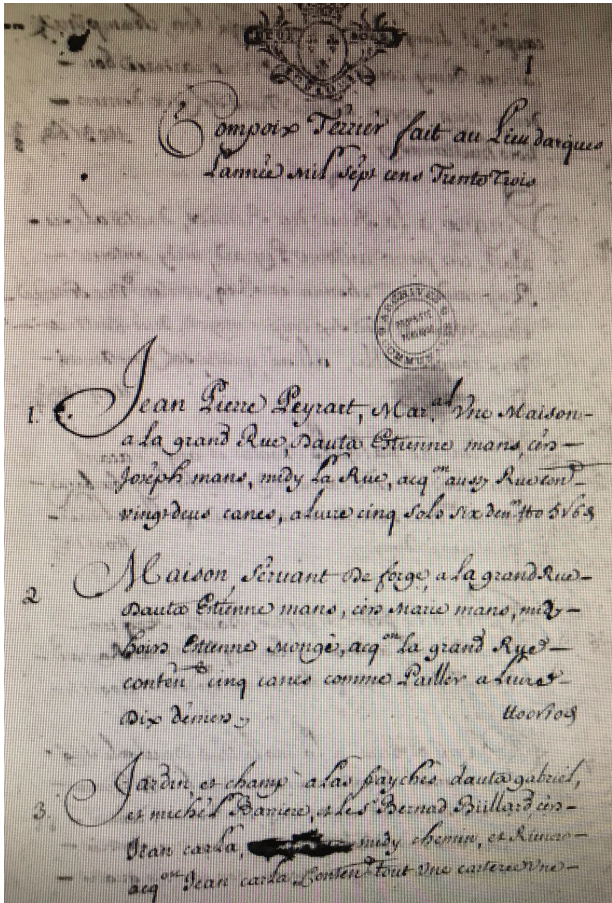 1
Compoix Terrier fait au Lieu darques
Lannée mil sept cens Trente Trois
ARCHIVES
1. Jean Pierre Peyrart, Mar.al Vne Maison
a la grand Rue, Dauta Estienne mans, cers
Joseph mans, midy La Rue, acqon aussy Rue con
vingt deus canes, aliure cinq sols six den.
2 Maison, Servant de forge, a la grand Rue
Dauta Estienne mans, cers Marie mans, midy
hoirs Estienne Mongé, acqon la grand Rue
conten cinq canes comme Pailler aliure
Dix deniers
3. Jardin, et champ a las fayches dauta gabriel,
et michel Barriere, et le Sr Bernad Billard cers
Jean carla, midy chemin, et
acqon Jean carla, Conten tout Vne carteree Vne